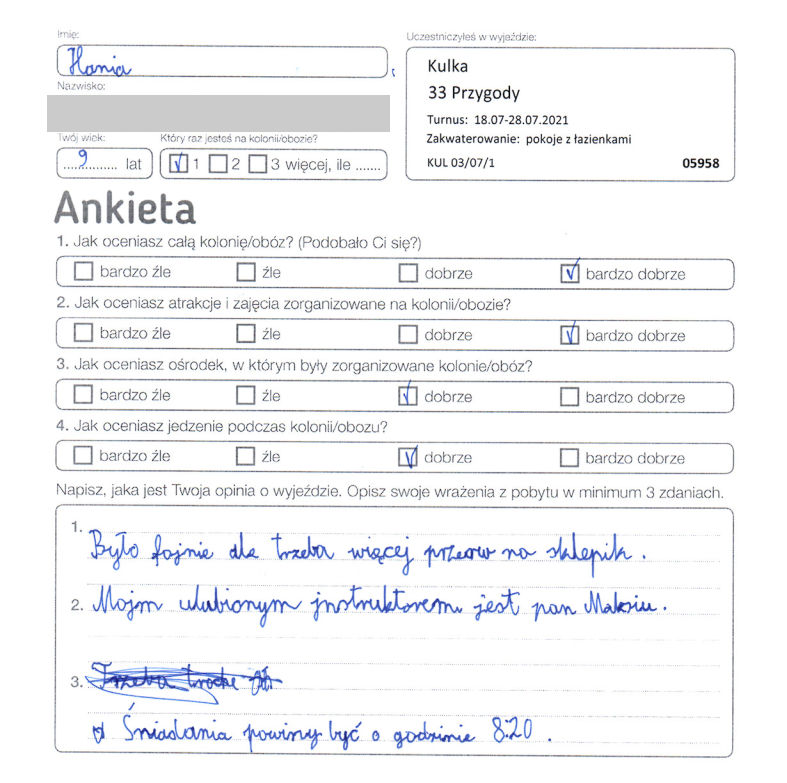 Imię:
Hania
Nazwisko:
Twój wiek:
9 lat
Który raz jesteś na kolonii/obozie?
1 2 3 więcej, ile .......
Uczestniczyłeś w wyjeździe:
Kulka
33 Przygody
Turnus: 18.07-28.07.2021
Zakwaterowanie: pokoje z łazienkami
KUL 03/07/1 05958
Ankieta
1. Jak oceniasz całą kolonię/obóz? (Podobało Ci się?)
bardzo źle źle dobrze bardzo dobrze
2. Jak oceniasz atrakcje i zajęcia zorganizowane na kolonii/obozie?
bardzo źle źle dobrze bardzo dobrze
3. Jak oceniasz ośrodek, w którym były zorganizowane kolonie/obóz?
bardzo źle źle dobrze bardzo dobrze
4. Jak oceniasz jedzenie podczas kolonii/obozu?
bardzo źle źle dobrze bardzo dobrze
Napisz, jaka jest Twoja opinia o wyjeździe. Opisz swoje wrażenia z pobytu w minimum 3 zdaniach.
1. Było fajnie ale trzeba więcej przerw na sklepik.
2. Mojm ulubionym jnstruktorem jest pan Maksiu.
3. Trzeba troche
Śniadania powiny być o godzinie 8:20.